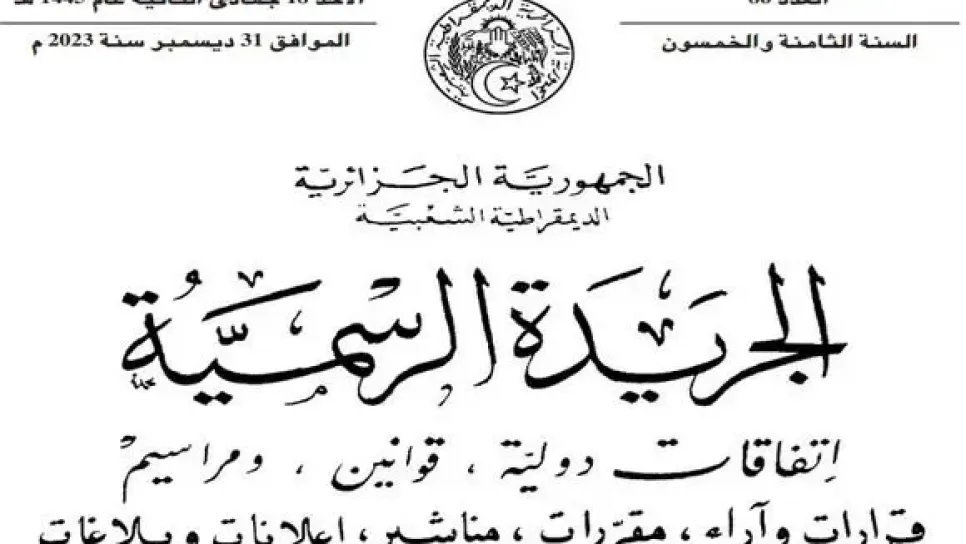 العدد 86
السنة الثامنة والخمسون
الأحد 18 جمادى الثانية عام 1445 هـ
الموافق 31 ديسمبر سنة 2023 م
الجمهوريّة الجزائريّة
الديمقراطيّة الشعبيّة
الجريدة الرسميّة
اتفاقات دوليّة ، قوانين ، ومراسيم
قرارات وآراء ، مقرّرات ، مناشير ، إعلانات وبلاغات